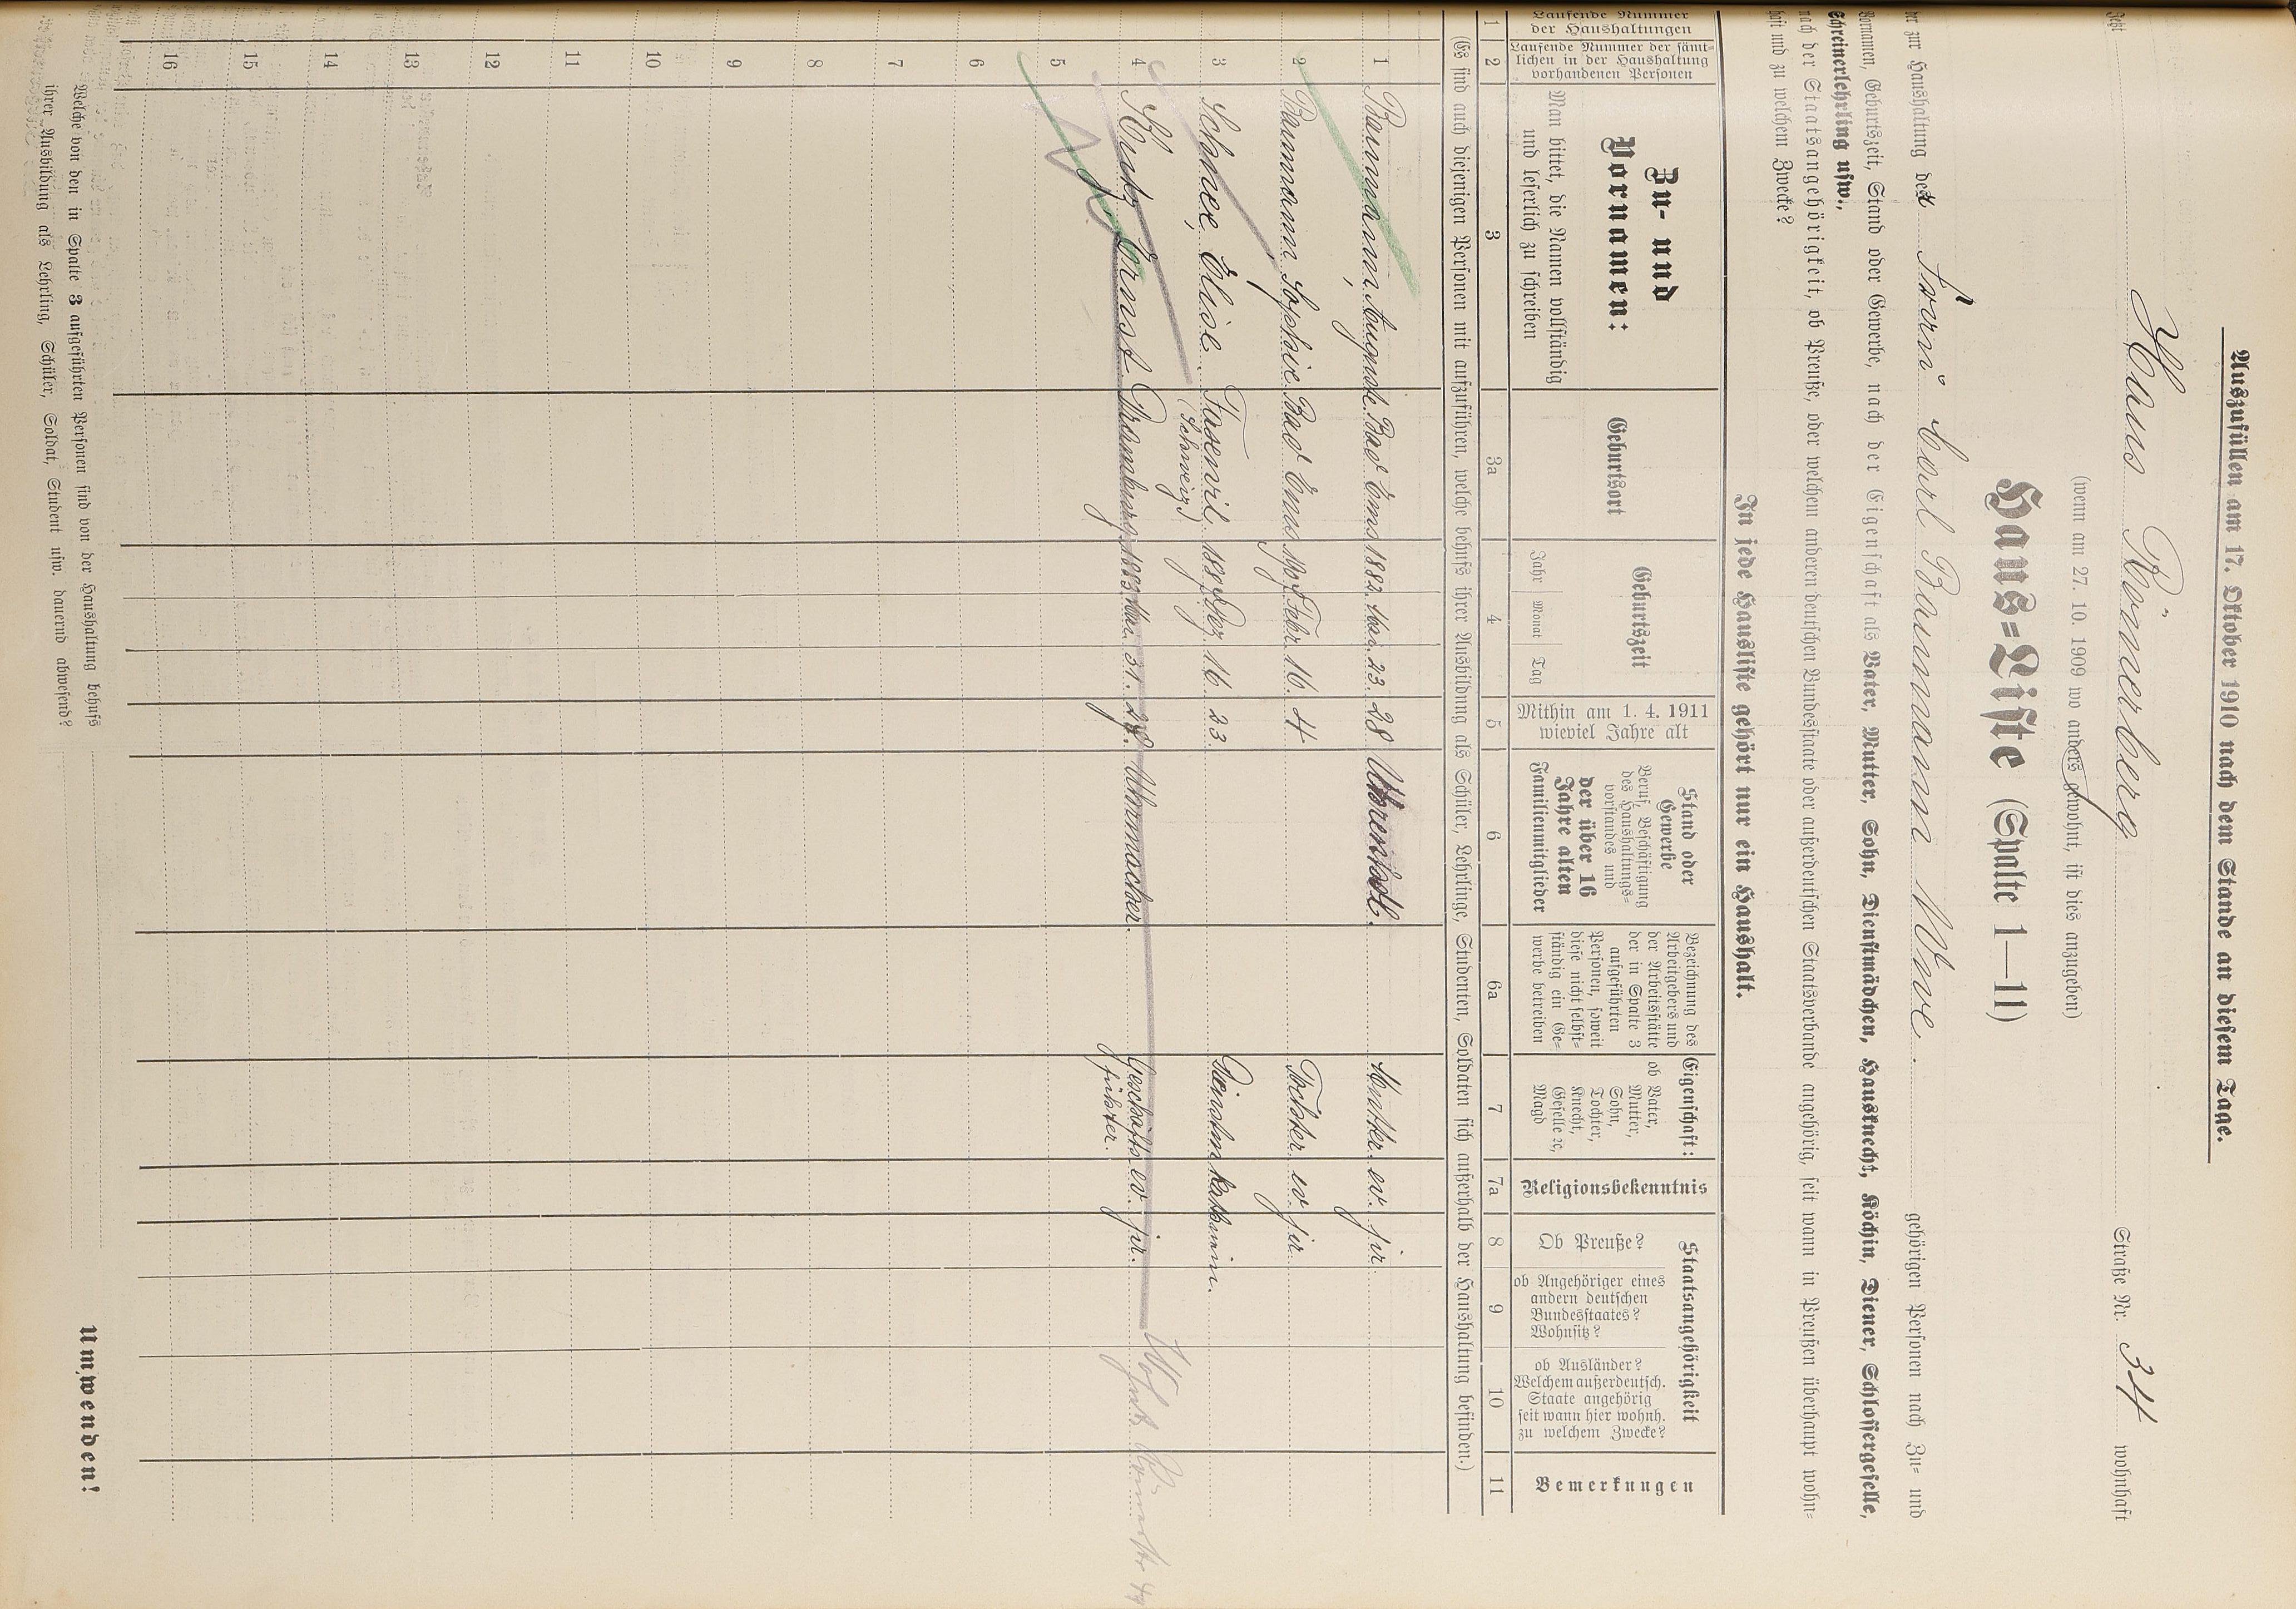 Auszufüllen am 17. Oktober 1910 nach dem Stande an diesem Tage.
Jetzt Haus Römerberg Straße Nr. 34 wohnhaft
(wenn am 27. 10. 1909 wo anders gewohnt, ist dies anzugeben)
Haus=Liste (Spalte 1—11)
der zur Haushaltung der Carl Baumann Wwe. gehörigen Personen nach Zu= und
Vornamen, Geburtszeit, Stand oder Gewerbe, nach der Eigenschaft als Vater, Mutter, Sohn, Dienstmädchen, Hausknecht, Köchin, Diener, Schlossergeselle,
Schreinerlehrling usw.,
nach der Staatsangehörigkeit, ob Preuße, oder welchem anderen deutschen Bundesstaate oder außerdeutschen Staatsverbande angehörig, seit wann in Preußen überhaupt wohn=
haft und zu welchem Zwecke?
In jede Hausliste gehört nur ein Haushalt.
Laufende Nummer der Haushaltungen
Laufende Nummer der sämt=lichen in der Haushaltung vorhandenen Personen
Zu- und Vornamen:
Man bittet, die Namen vollständig und leserlich zu schreiben
Geburtsort
Geburtszeit
Jahr Monat Tag
Mithin am 1. 4. 1911 wieviel Jahre alt
Stand oder Gewerbe
Beruf, Beschäftigung des Haushaltungs=vorstandes und der über 16 Jahre alten Familienmitglieder
Bezeichnung des Arbeitgebers und der Arbeitsstätte der in Spalte 3 aufgeführten Personen, soweit diese nicht selbst=ständig ein Ge=werbe betreiben
Eigenschaft:
ob Vater, Mutter, Sohn, Tochter, Knecht, Geselle ec, Magd
Religionsbekenntnis
Staatsangehörigkeit
Ob Preuße?
ob Angehöriger eines andern deutschen Bundesstaates? Wohnsitz?
ob Ausländer? Welchem außerdeutsch. Staate angehörig seit wann hier wohnh. zu welchem Zwecke?
Bemerkungen
1 2 3 3a 4 5 6 6a 7 7a 8 9 10 11
(Es sind auch diejenigen Personen mit aufzuführen, welche behufs ihrer Ausbildung als Schüler, Lehrlinge, Studenten, Soldaten sich außerhalb der Haushaltung befinden.)
1 Baumann, Auguste Bad Ems 1882 Mai 23. 28 Uhrenhandl. Mutter ev.
2 Baumann Sophie Bad Ems Febr. 16. 4 Tochter ev
3 Elise 16. 23. Dienstm
(Schweiz)
4 Ernst 31. 27. Uhrmacher. Geschäfts ev. Wohnt 49
führer.
5
6
7
8
9
10
11
12
13
14
15
16
Welche von den in Spalte 3 aufgeführten Personen sind von der Haushaltung behufs
ihrer Ausbildung als Lehrling, Schüler, Soldat, Student usw. dauernd abwesend?
Umwenden!